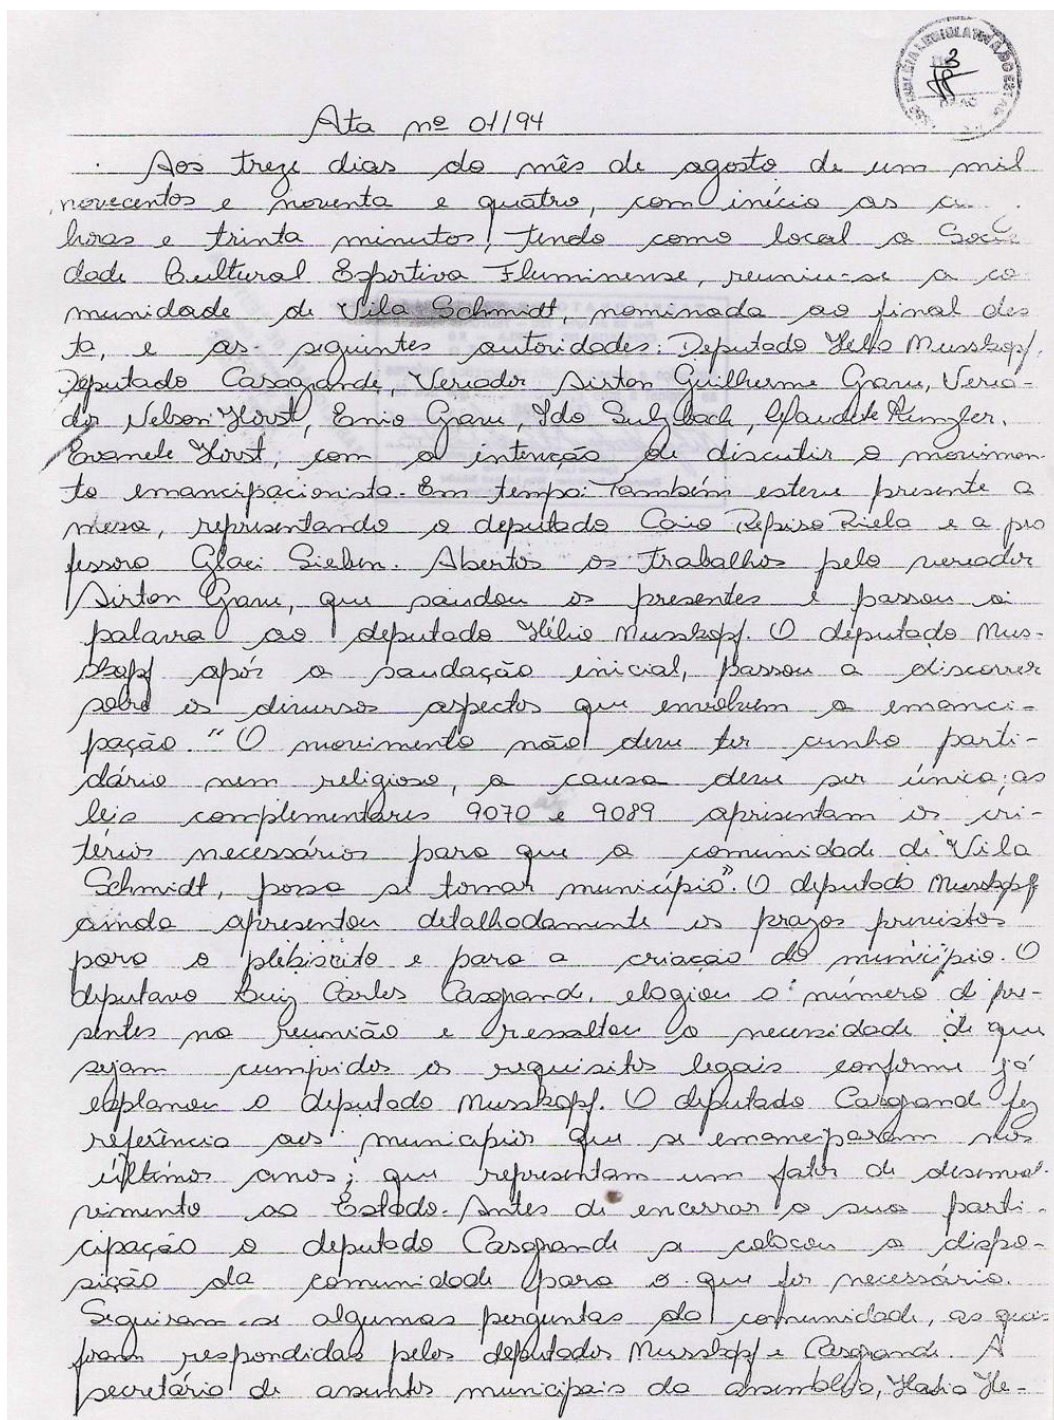 3
Ata nº 01/94
Aos treze dias do mês de agosto de um mil
novecentos e noventa e quatro, com início as
horas e trinta minutos, tendo como local a Socie
dade Cultural Esportiva Fluminense, reuniu-se a co
munidade de Vila Schmidt, nominada ao final des
ta, e as seguintes autoridades: Deputado Hélio Musskopf,
Deputado Casagrande, Vereador Airton Guilherme Grave, Verea-
dor Nelson Horst, Enio Grave, Ido Sulzbach, Claudete Künzler,
Evanete Horst, com a intenção de discutir o movimen
to emancipacionista. Em tempo: Também esteve presente a
mesa, representando o deputado Caio Repiso Riela e a pro
fessora Glaci Sieben. Abertos os trabalhos pelo vereador
Airton Grave, que saudou os presentes e passou a
palavra ao deputado Hélio Musskopf. O deputado Mus-
skopf após a saudação inicial, passou a discorrer
sobre os diversos aspectos que envolvem a emanci-
pação. "O movimento não deve ter cunho parti-
dário nem religioso, a causa deve ser única; as
leis complementares 9070 e 9089 apresentam os cri-
térios necessários para que a comunidade de Vila
Schmidt, possa se tornar município". O deputado Musskopf
ainda apresentou detalhadamente os prazos previstos
para o plebiscito e para a criação do município. O
deputavo Luiz Carlos Casgrande, elogiou o número de pre-
sentes na reunião e ressaltou a necessidade de que
sejam cumpridos os requisitos legais conforme já
explanou o deputado Musskopf. O deputado Casgrande fez
referência aos municípios que se emanciparam nos
últimos anos; que representam um fator de desenvol-
vimento ao Estado. Antes de encerrar a sua parti-
cipação o deputado Casgrande se colocou a dispo-
sição da comunidade para o que for necessário.
Seguiram-se algumas perguntas da comunidade, as quais
foram respondidas pelos deputados Musskopf e Casgrande. A
secretária de assuntos municipais da assembléia, He-